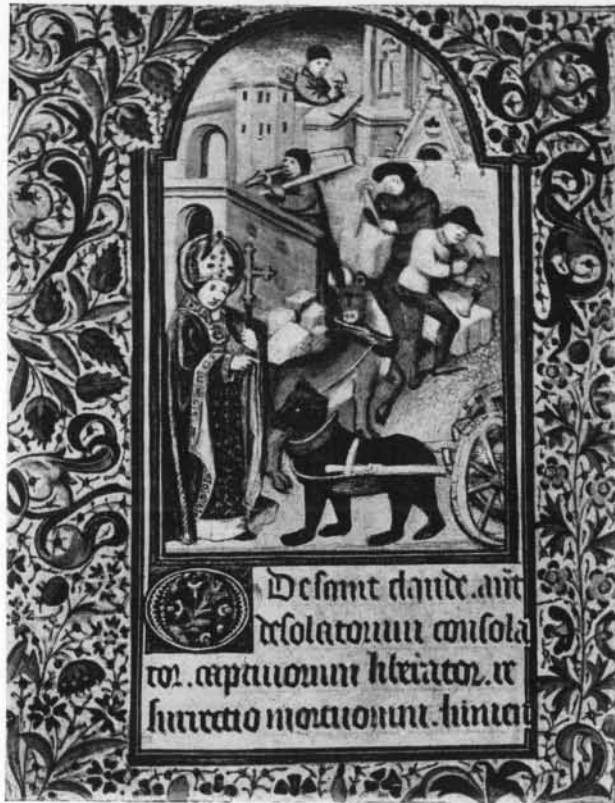 De saint claude. añt
desolatorum consola
tor. captiuorum liberator. re
surrectio mortuorum.